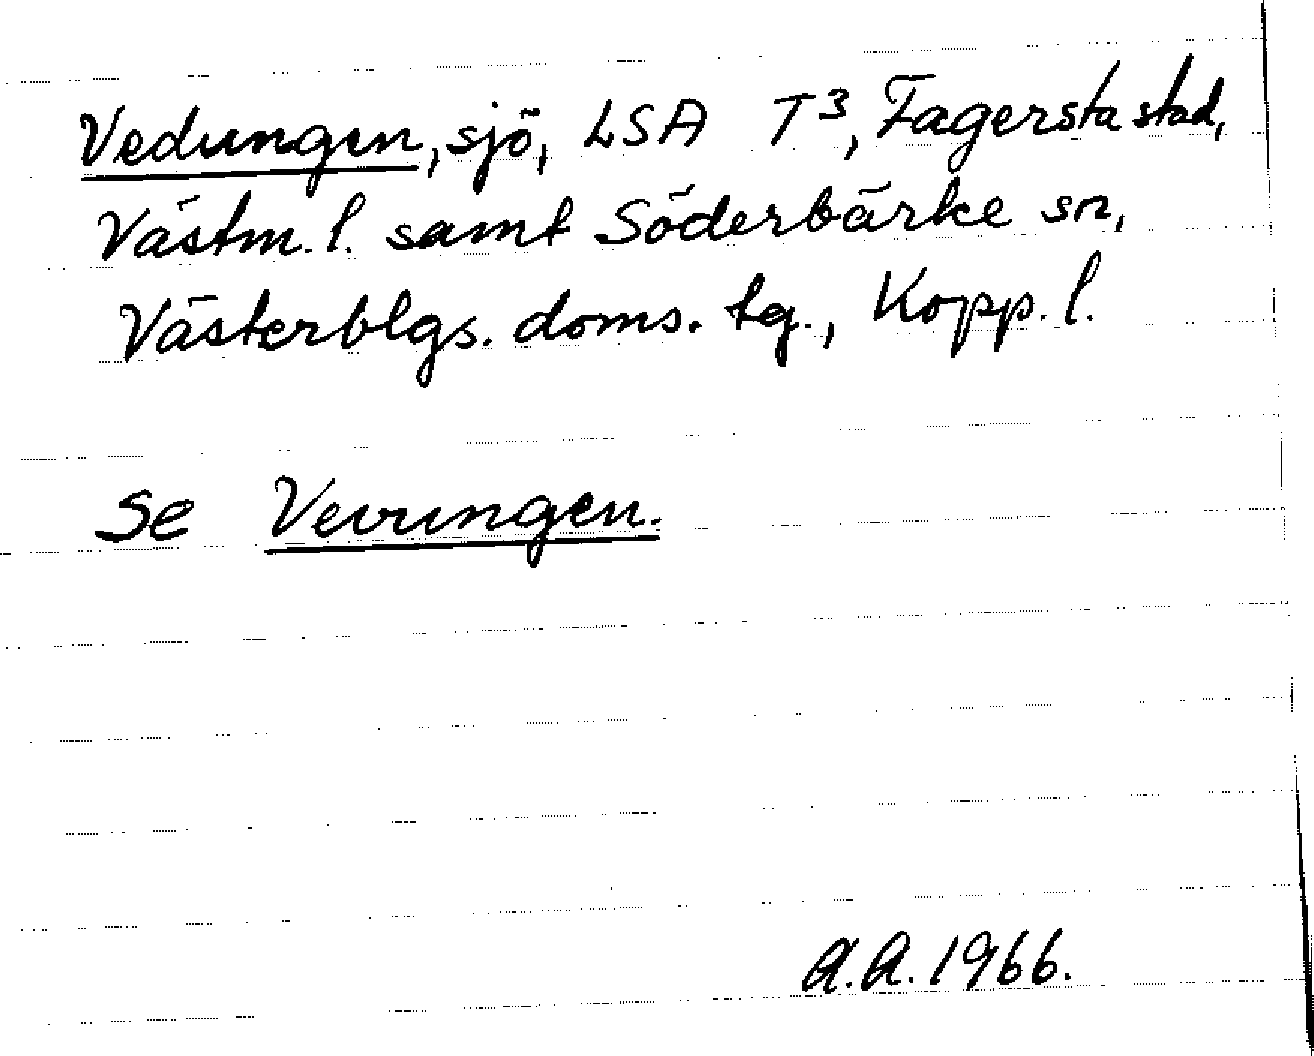 Vedungen, sjö, LSA T³, Fagersta stad,
Västm. l. samt Söderbärke sn,
Västerblgs. doms. tg., Kopp. l.
Se Vevungen.
A.A. 1966.